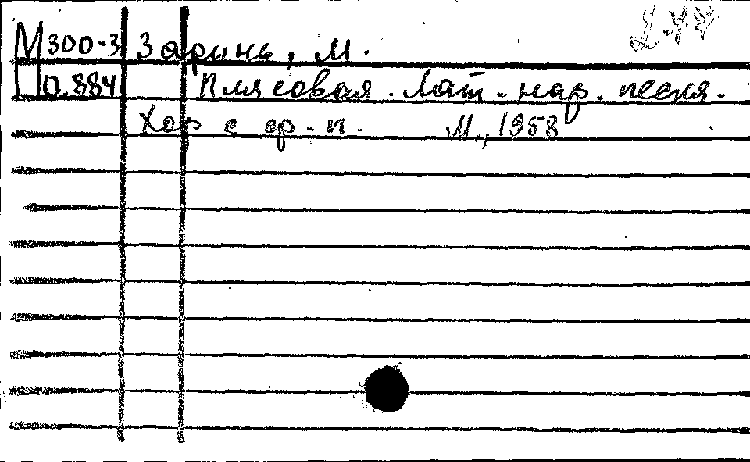 М 300-3 Заринь, М.
П 0.884 Плясовая. Лат. нар. песня.
Хор с ф.-п. М., 1958